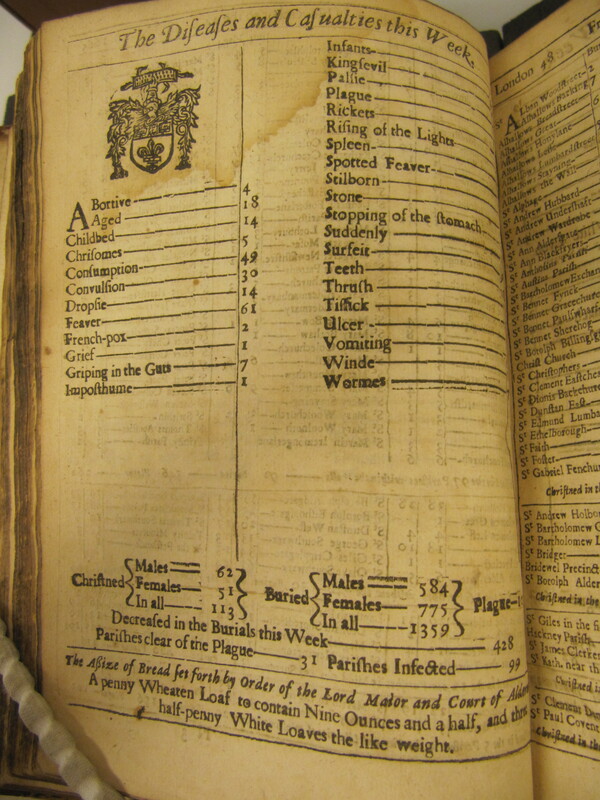 The Diſeaſes and Caſualties this Week.
Abortive 4
Aged 18
Childbed 14
Chriſomes 5
Conſumption 49
Convulſion 30
Dropſie 14
Feaver 61
French-pox 2
Grief 1
Griping in the Guts 7
Impoſthume 1
Infants
Kingſevil
Palſie
Plague
Rickets
Riſing of the Lights
Spleen
Spotted Feaver
Stilborn
Stone
Stopping of the ſtomach
Suddenly
Surfeit
Teeth
Thruſh
Tiſſick
Ulcer
Vomiting
Winde
Wormes
Chriſtned
Males 62
Females 51
In all 113
Buried
Males 584
Females 775
In all 1359
Plague
Decreaſed in the Burials this Week 428
Pariſhes clear of the Plague 31 Pariſhes Infected 99
The Aſſize of Bread ſet forth by Order of the Lord Maior and Court of
A penny Wheaten Loaf to contain Nine Ounces and a half, and three
half-penny White Loaves the like weight.
London 48
St Alban
Alhallows Barking
Alhallows
Alhallows Great
Alhallows
Alhallows
Alhallows Staining
Alhallows the Wall
St Alphage
St Andrew Hubbard
St Andrew Underſhaft
St Andrew Wardrobe
St Ann
St Ann Blackfryers
St Antholins Pariſh
St Auſtins Pariſh
St Bartholomew
St Bennet Fynck
St Bennet
St Bennet
St Bennet Sherehog
St Botolph
Chriſt Church
St Chriſtophers
St Clement
St Dionis
St Dunſtan Eaſt
St Edmund
St Ethelborough
St Faith
St Foſter
St Gabriel
Chriſtned in the
St Andrew
St Bartholomew
St Bartholomew
St Bridget
Bridewel Precinct
St Botolph
Chriſtned in the
St Giles in the
Hackney Pariſh
St James
St Kath. near the
Chriſtned in
St Clement
St Paul
Chriſtned in the